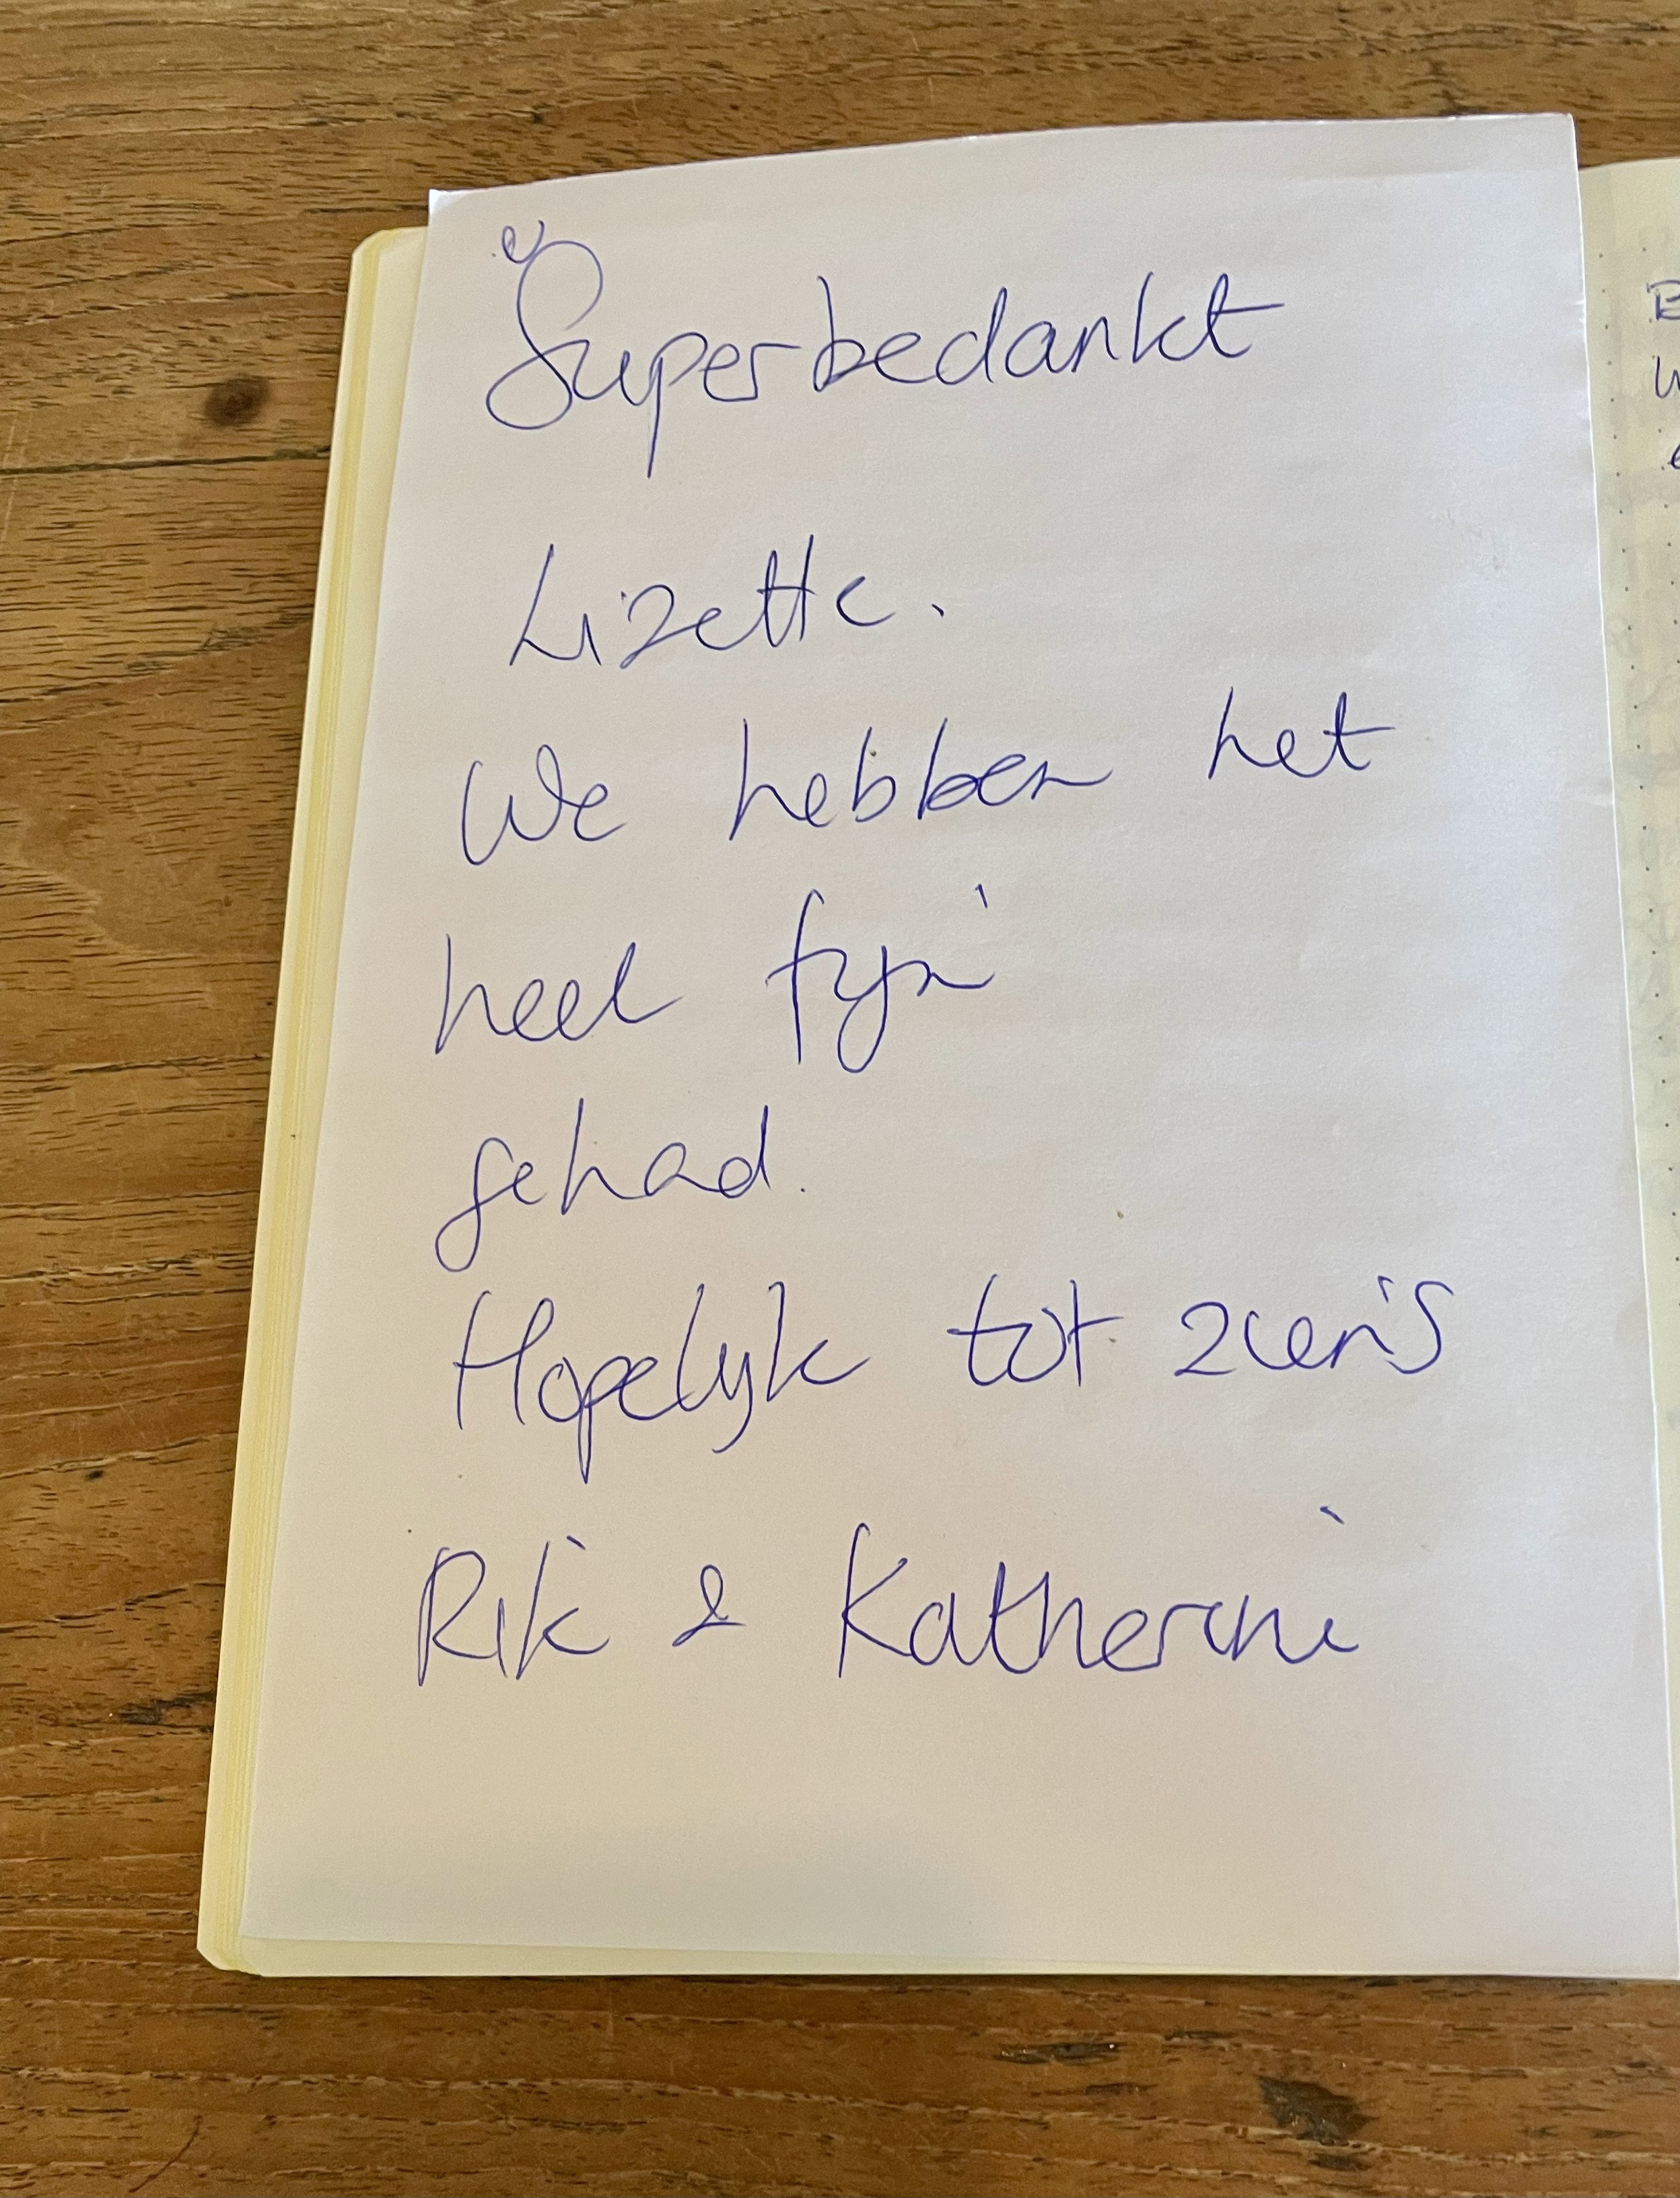 Superbedankt
Lizette.
We hebben het
heel fijn
gehad.
Hopelijk tot ziens
Rik & Katherini